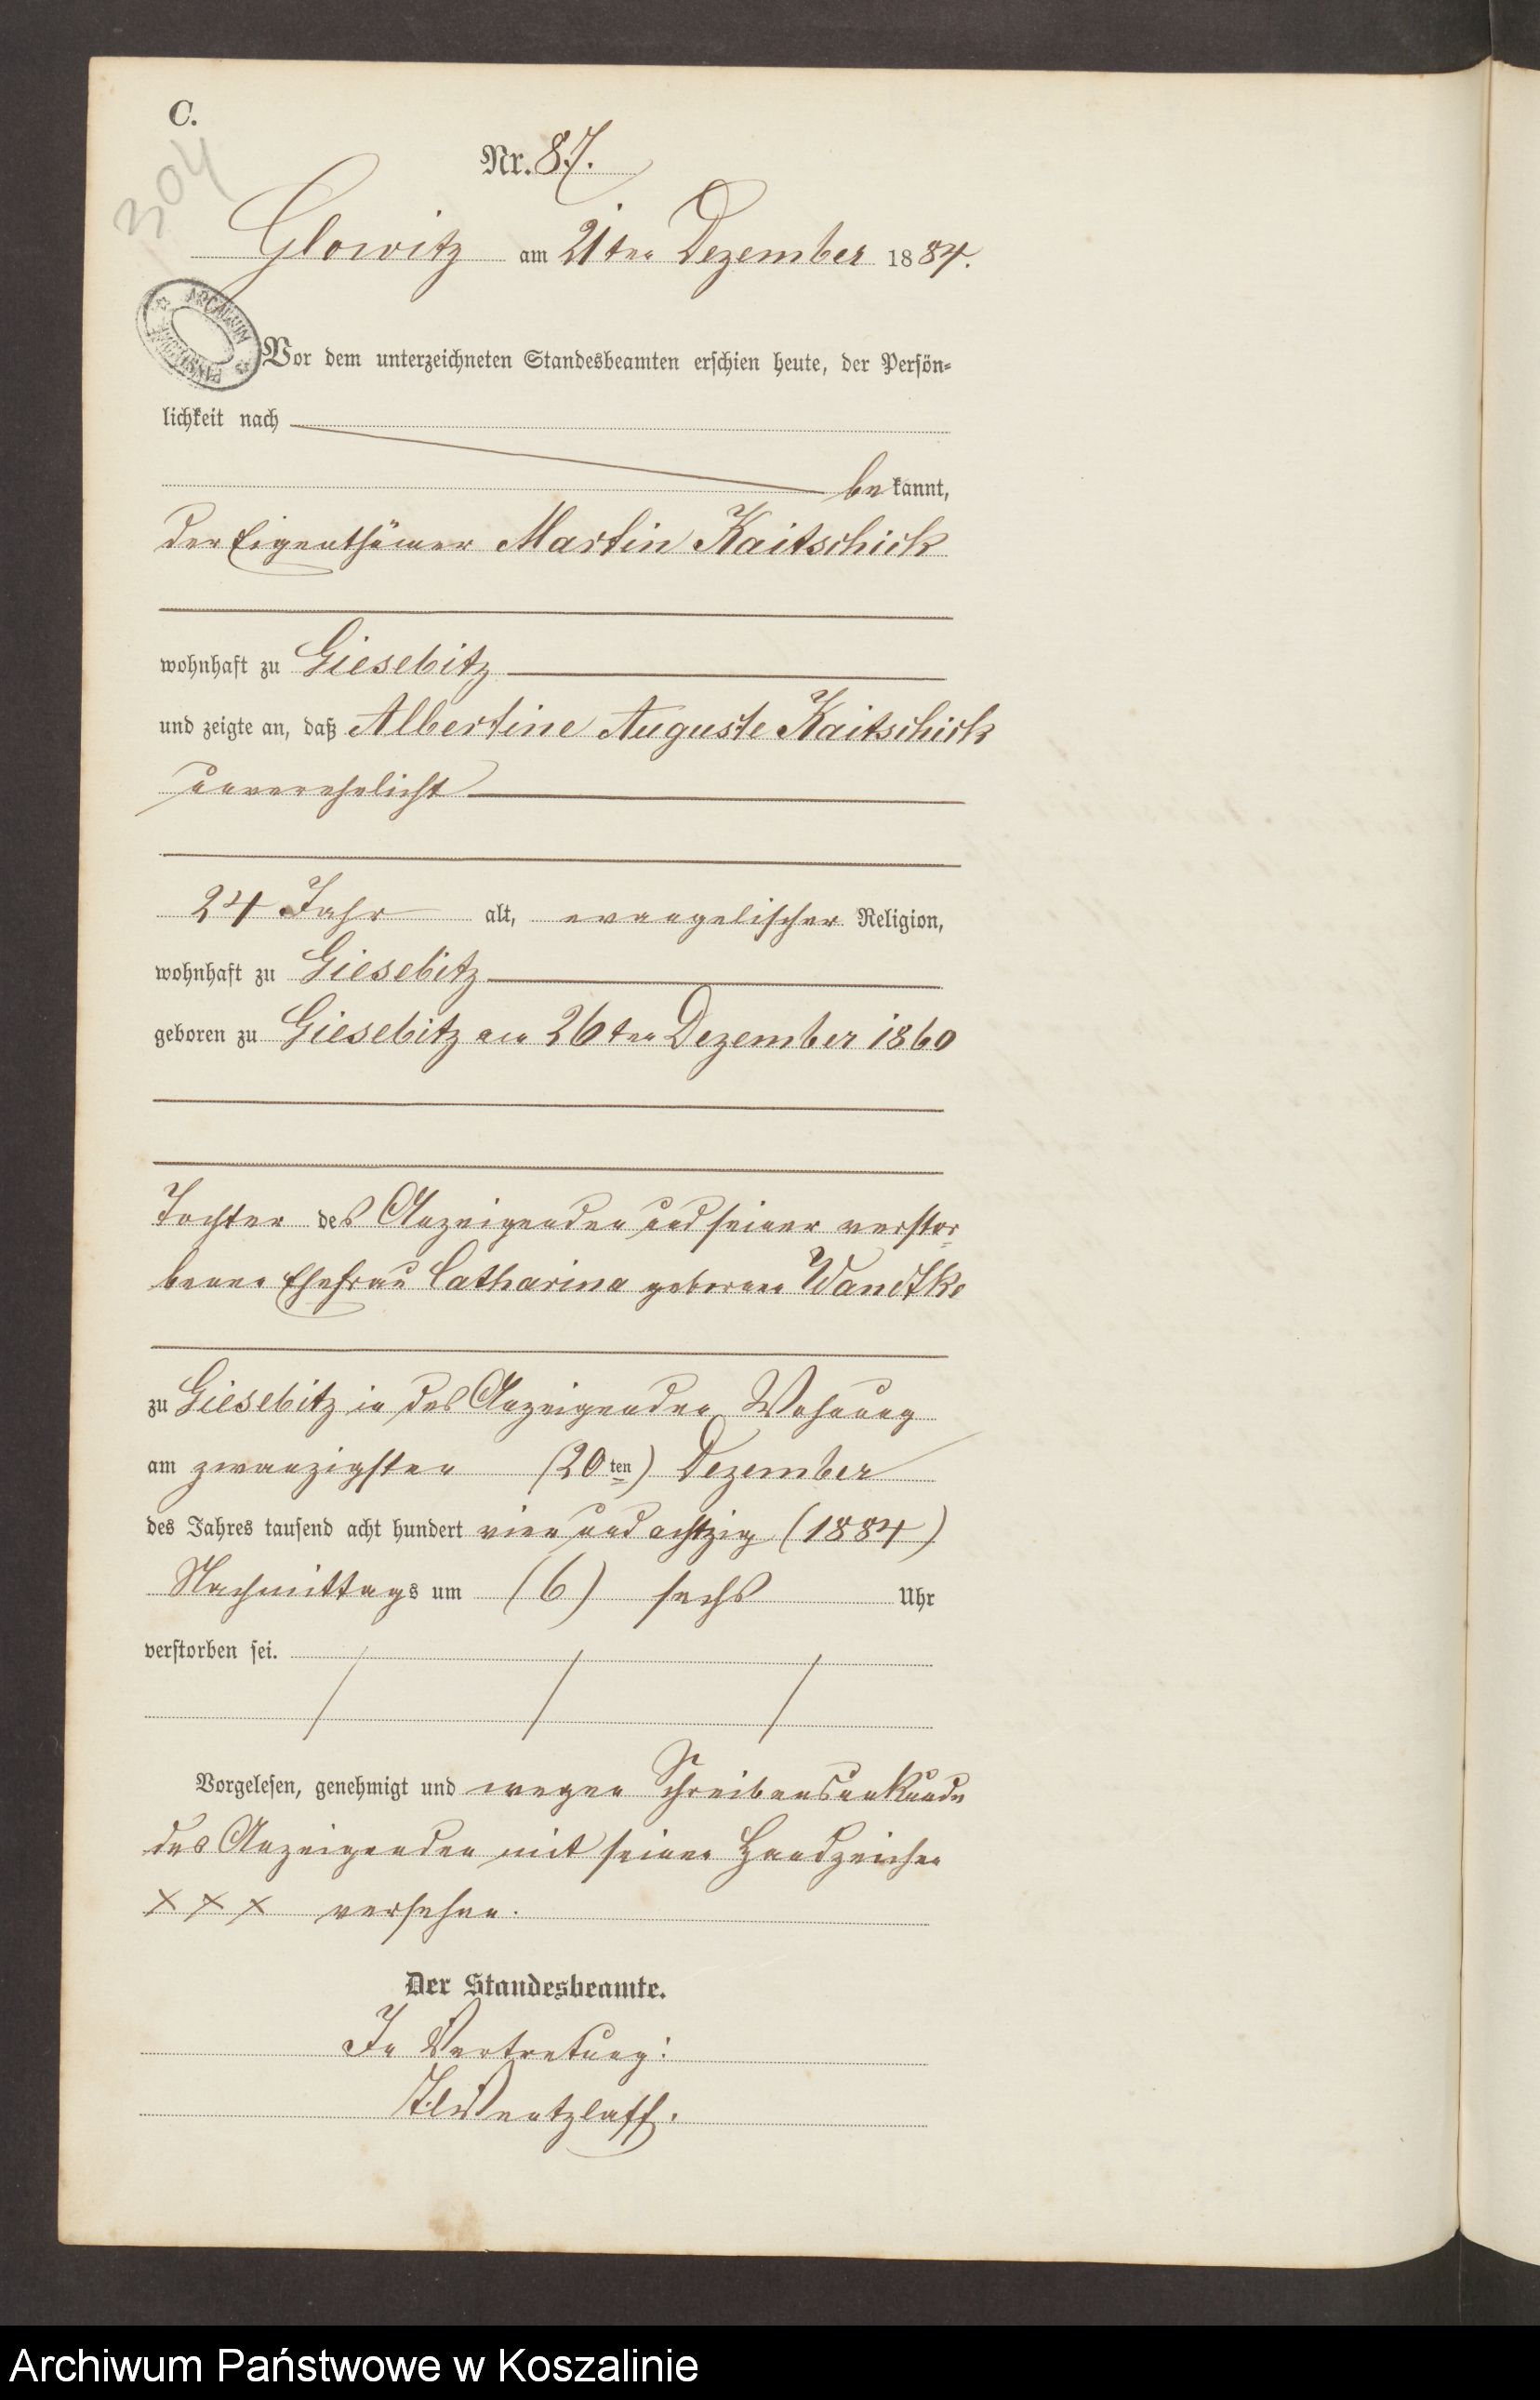 C.
304
Nr. 87.
Glowitz am 21ten Dezember 1884.
ARCHIWUM PAŃSTWOWE
Vor dem unterzeichneten Standesbeamten erschien heute, der Persön-
lichkeit nach
bekannt,
der Eigenthümer Martin Kaitschick
wohnhaft zu Giesebitz
und zeigte an, daß Albertine Auguste Kaitschick
unverehelicht
24 Jahr alt, evangelischer Religion,
wohnhaft zu Giesebitz
geboren zu Giesebitz am 26ten Dezember 1860
Tochter des Anzeigenden und seiner verstor-
benen Ehefrau Catharina geborene Wandtke
zu Giesebitz in des Anzeigenden Wohnung
am zwanzigsten (20ten) Dezember
des Jahres tausend acht hundert vier und achtzig (1884)
Nachmittags um (6) sechs Uhr
verstorben sei.
Vorgelesen, genehmigt und wegen Schreibensunkunde
des Anzeigenden mit seinen Handzeichen
××× versehen.
Der Standesbeamte.
In Vertretung:
Wentzlaff.
Archiwum Państwowe w Koszalinie